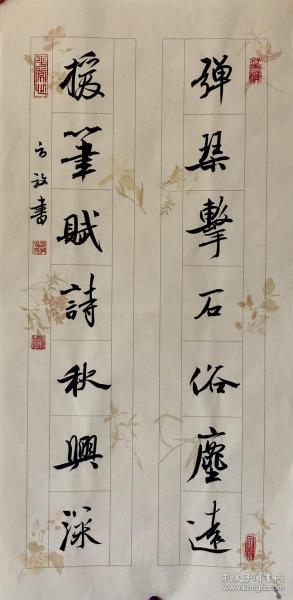 弹琴擊石俗塵遠
援筆賦詩秋興深
方放書
孔夫子旧书网